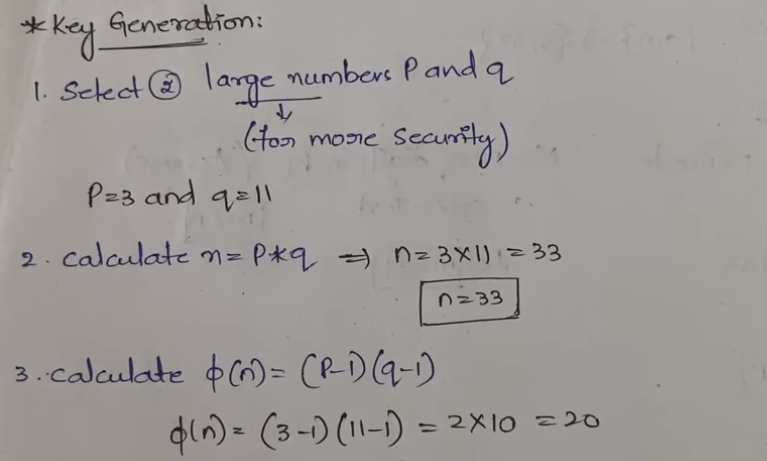 * Key Generation:
1. Select ② large numbers P and q
↓
(for more security)
P=3 and q=11
2. calculate n= P*q ⇒ n= 3×11 = 33
n=33
3. calculate ϕ(n)= (P-1)(q-1)
ϕ(n)= (3-1)(11-1) = 2×10 = 20